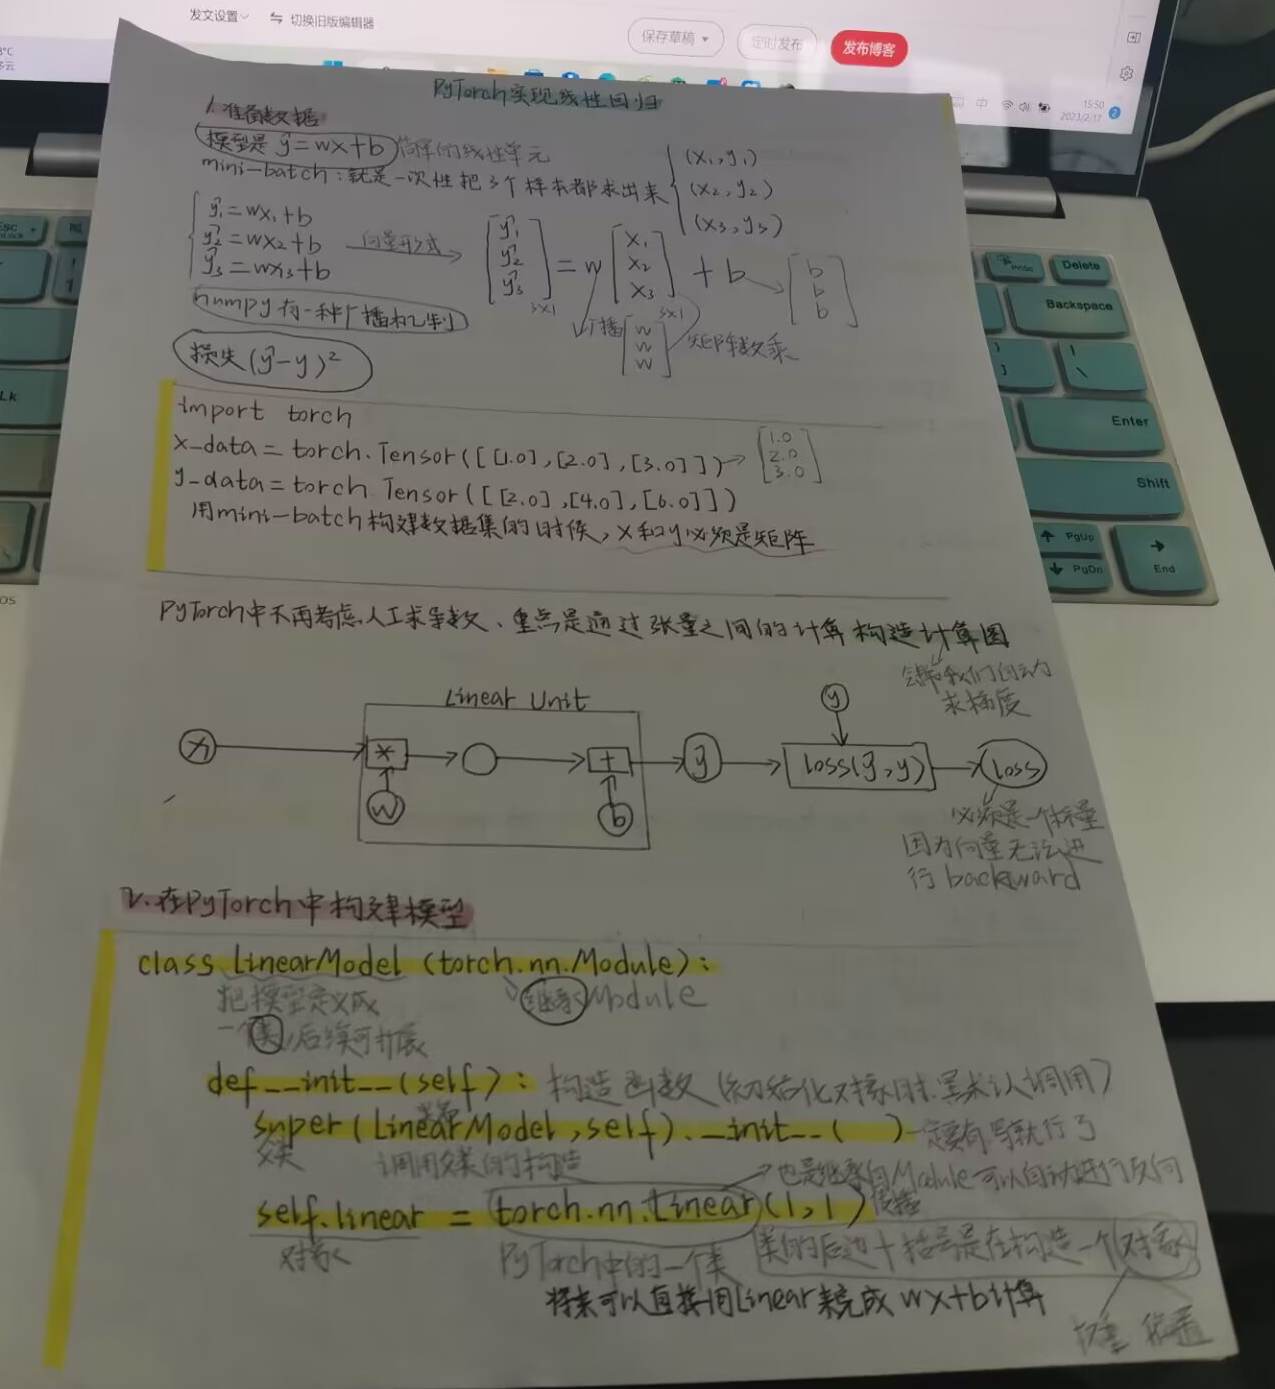 发文设置 切换旧版编辑器 保存草稿 定时发布 发布博客
15:50
2023/2/17
PyTorch实现线性回归
1.准备数据
模型是 ŷ=wx+b 简单的线性单元
mini-batch:就是一次性把3个样本都求出来
(x₁,y₁)
(x₂,y₂)
(x₃,y₃)
ŷ₁=wx₁+b
ŷ₂=wx₂+b
ŷ₃=wx₃+b
向量形式
ŷ₁
ŷ₂
ŷ₃
3×1
= w
x₁
x₂
x₃
3×1
+ b
b
b
b
numpy有一种广播机制
广播
w
w
w
矩阵数乘
损失(ŷ-y)²
import torch
x_data=torch.Tensor([[1.0],[2.0],[3.0]])
1.0
2.0
3.0
y_data=torch.Tensor([[2.0],[4.0],[6.0]])
用mini-batch构建数据集的时候,x和y必须是矩阵
PyTorch中不再考虑人工求导数、重点是通过张量之间的计算构造计算图
会帮我们自动
求梯度
Linear Unit
x * w + b ŷ y loss(ŷ,y) loss
必须是一个标量
因为向量无法进
行backward
2.在PyTorch中构建模型
class LinearModel (torch.nn.Module):
把模型定义成
一个类,后续可扩展
继承Module
def __init__(self): 构造函数(初始化对象时.默认调用)
super(LinearModel,self).__init__( ) 一定要有写就行了
父类 调用父类的构造
也是继承自Module可以自动进行反向
传播
self.linear = torch.nn.Linear(1,1)
对象 PyTorch中的一个类
类的后边+括号是在构造一个对象
将来可以直接用Linear来完成wx+b计算
权重 偏置
Delete
Backspace
Enter
Shift
PgUp
PgDn
End